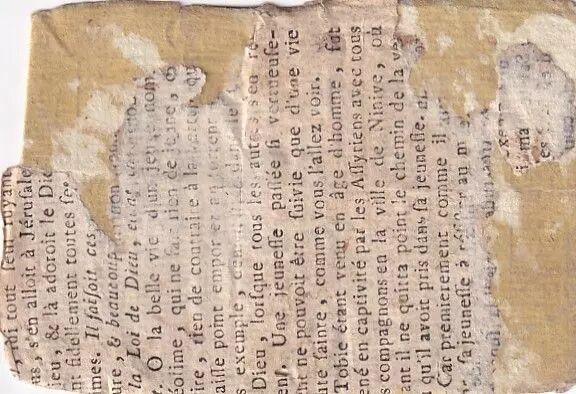 tout ſeul fuyant
ns, s'en alloit à Jéruſale
ieu, & là adoroit le Die
nt fidellement toutes ſes
imes. Il faiſoit ces
ure, & beaucoup mon
la Loi de Dieu,
t. O la belle vie d'un jeune hom
qui ne fait rien de jeune, &
ire, rien de contraire à la qu
aiſſe point emporter au torrent
s exemple, dans le
Dieu, lorſque tous les autres s'en re
ens. Une jeuneſſe paſſée ſi vertueuſe-
nt ne pouvoit être ſuivie que d'une vie
ute ſainte, comme vous l'allez voir.
Tobie étant venu en âge d'homme, fut
ené en captivité par les Aſſyriens avec tous
s compagnons en la ville de Ninive, où
ant il ne quitta point le chemin de la vé
u qu'il avoit pris dans ſa jeuneſſe.
Car premierement comme il
ſa jeuneſſe à au m
ma
es